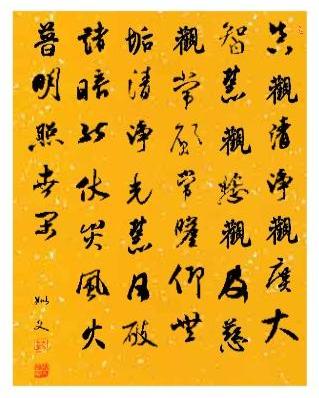 真觀清淨觀廣大
智慧觀悲觀及慈
觀常願常瞻仰無
垢清淨光慧日破
諸暗能伏災風火
普明照世間
文